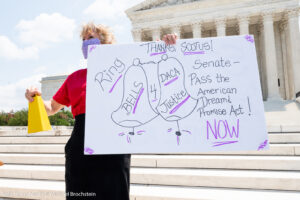 Thanks, SCOTUS!
Ring
BELLS
4
DACA
Justice
Senate-
Pass the
American
Dream &
Promise Act!
NOW
Brochstein